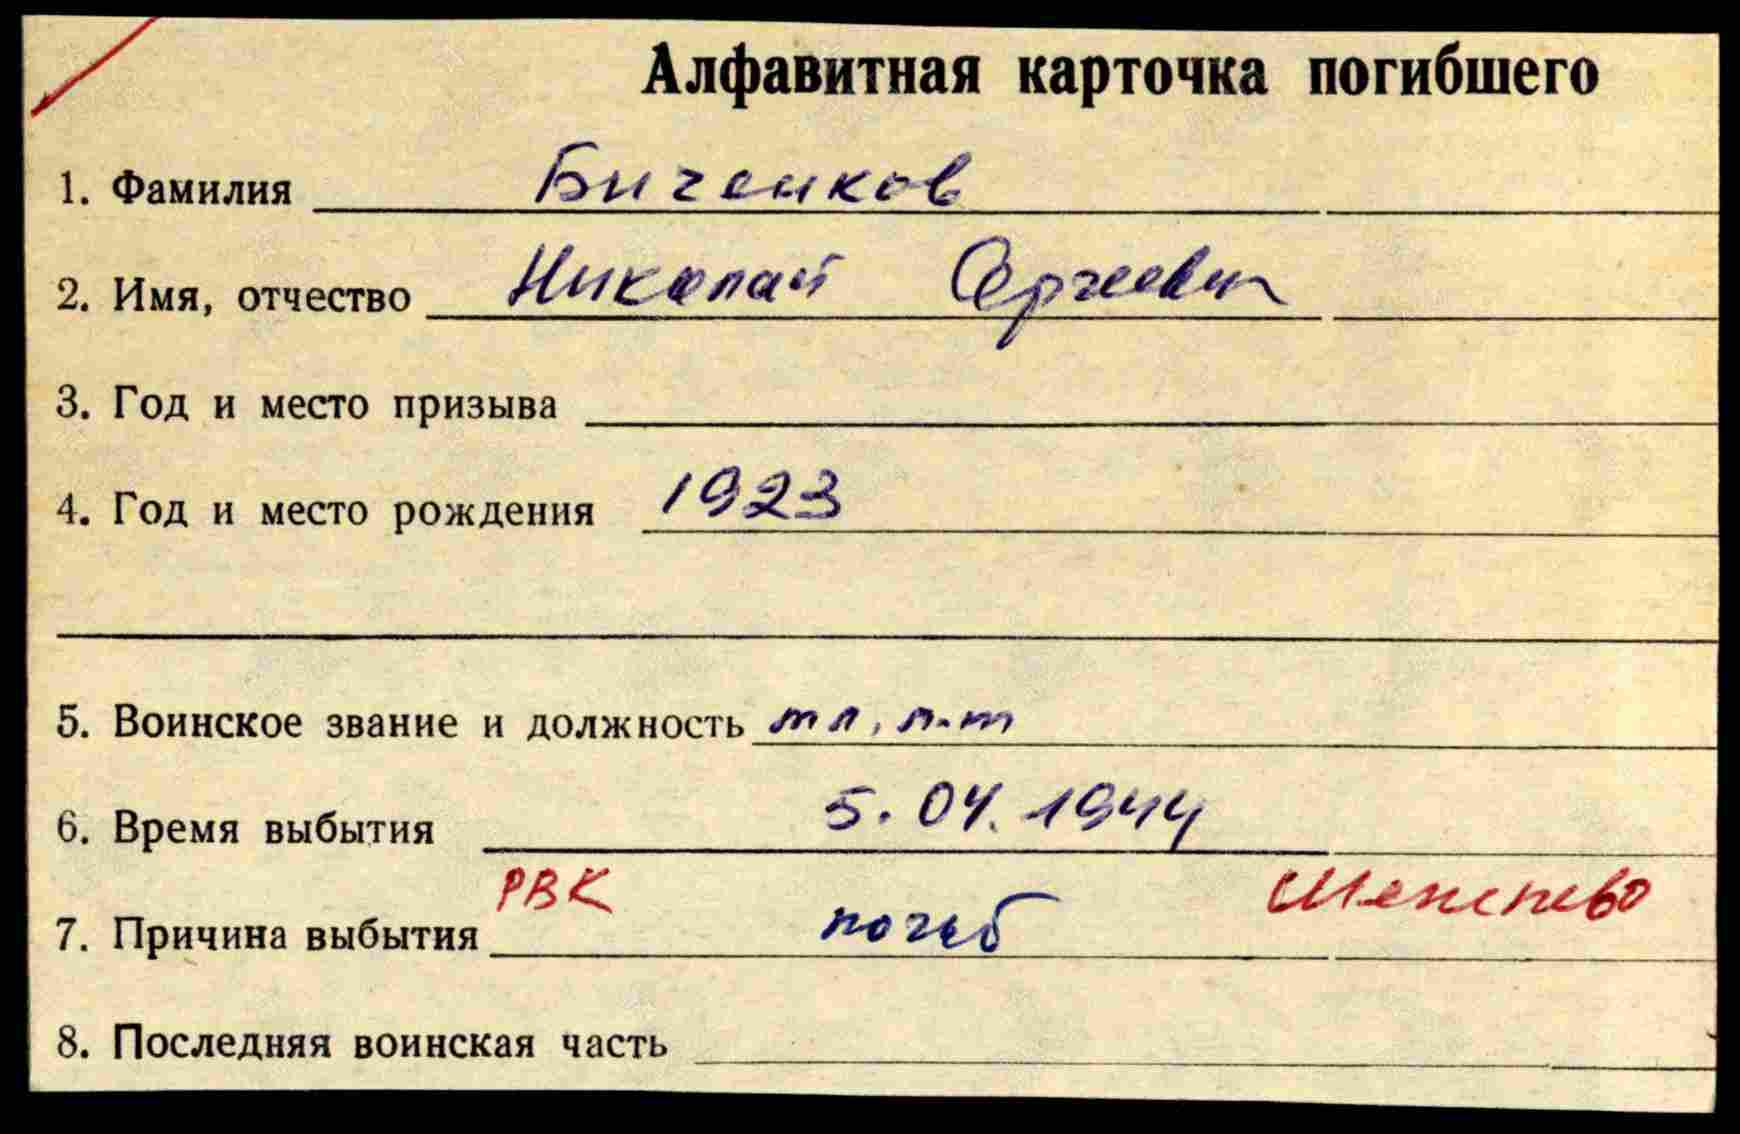 Алфавитная карточка погибшего
1. Фамилия Биченков
2. Имя, отчество Николай Сергеевич
3. Год и место призыва
4. Год и место рождения 1923
5. Воинское звание и должность мл. л-т
6. Время выбытия 5.04.1944
РВК
7. Причина выбытия погиб
8. Последняя воинская часть